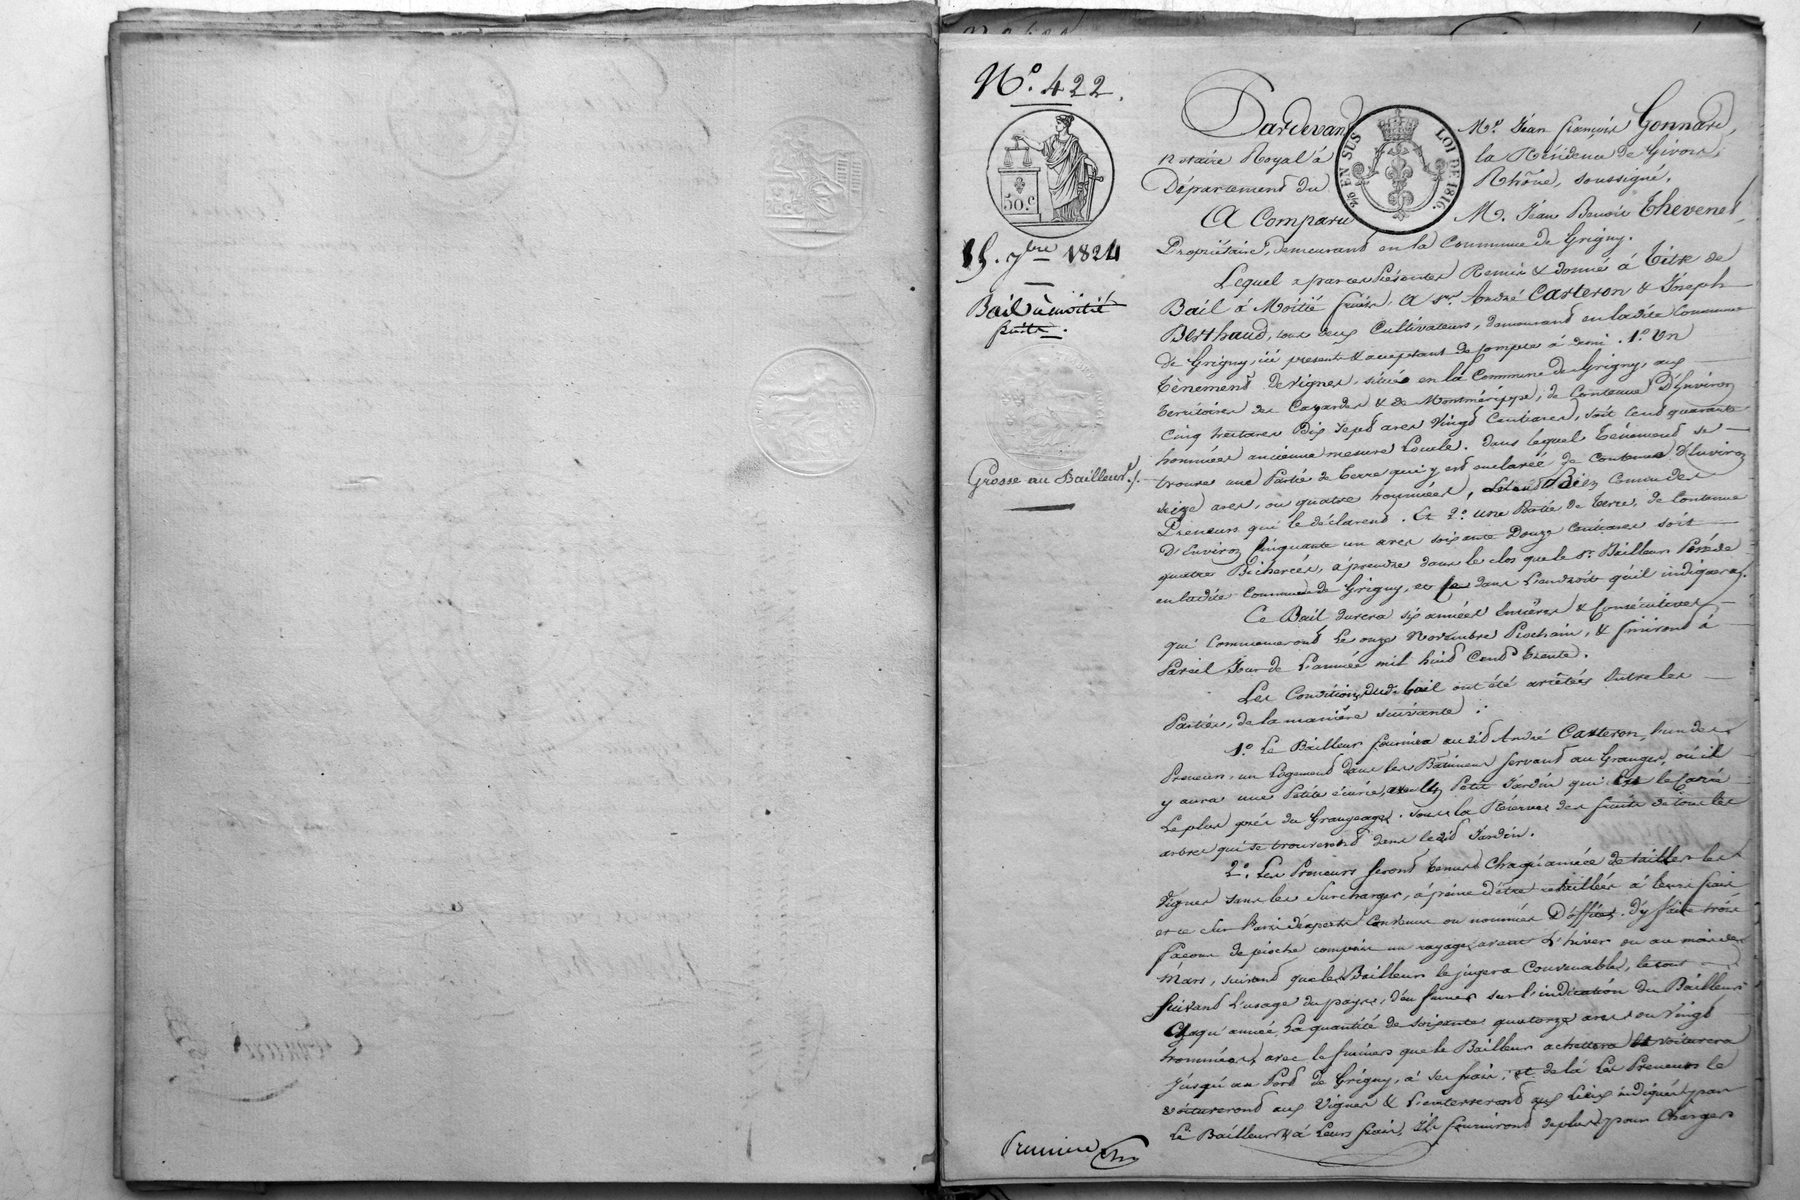 N.o 422.
50.c
25 EN SUS
LOI DE 1816.
15. 7bre 1824
Bail à moitié
fruits.
Grosse au Bailleur
Pardevant Me. Jean françois Gonnard,
notaire Royal à la Résidence de Givors,
Département du Rhône, soussigné.
A Comparu M. Jean Benoit Thevenet,
Propriétaire, demeurant en la Commune de Grigny.
Lequel a par ces Présentes Remis & donné à Titre de
Bail à Moitié fruits, A srs. André Carteron & Joseph
Berthaud, tous deux Cultivateurs, demeurant en ladite Commune
de Grigny, ici présents & acceptant de compte à demi. 1.o Un
Tènement de vignes, située en la Commune de Grigny, aux
territoires des Cazardes & de Montmérippe, de Contenue D'Environ
Cinq hectares Dix Sept ares Vingt Centiares, soit Cent quarante
hommées ancienne mesure Locale. dans lequel Ténement se
trouve une Partie de terre qui y est enclavée de contenue D'Environ
seize ares, ou quatre hommées, étant Bien Connu des
Preneurs qui le déclarent. Et 2.o une Partie de Terre, de Contenue
D'Environ Cinquante un ares soixante Douze Centiares soit
quatre Bicherées, à prendre dans le clos que le sr. Bailleur Possède
en ladite Commune de Grigny, et dans l'endroit qu'il indiquera.
Ce Bail durera six années Entières & Consécutives
qui Commenceront Le onze Novembre Prochain, & finiront à
Pareil Jour de L'année mil huit Cent Trente.
Les Conditions dudt. bail ont été arrêtées Entre les
Parties, de la manière suivante :
1.o Le Bailleur fournira audt André Carteron, l'un des
Preneurs, un Logement dans les Bâtiments servant au Granger, où il
y aura une Petite écurie, avec Un Petit Jardin qui Est le Carré
Le plus près du Grangeage. sous la Réserve des fruits de tous les
arbres qui se trouveront dans ledt Jardin.
2.o Les Preneurs seront tenus Chaque année de tailler les
Vignes sans les Surcharger, à peine d'être retaillées à leurs frais
et ce sur l'avis d'experts Convenus ou nommés D'office. d'y faire trois
façons de pioche compris un rayage avant L'hiver ou au mois de
Mars, suivant que le Bailleur le jugera Convenable, le tout
suivant L'usage du pays, d'en fumer sur l'indication du Bailleur
Chaqu'année, La quantité de soixante quatorze ares ou Vingt
hommées, avec le fumier que le Bailleur achettera et voiturera
Jusqu'au Port de Grigny, à ses frais, et de là Les Preneurs le
voitureront aux Vignes & l'enterreront aux Lieux indiqués par
Le Bailleur & à Leurs frais, Ils fourniront de plus pour Charger
Première